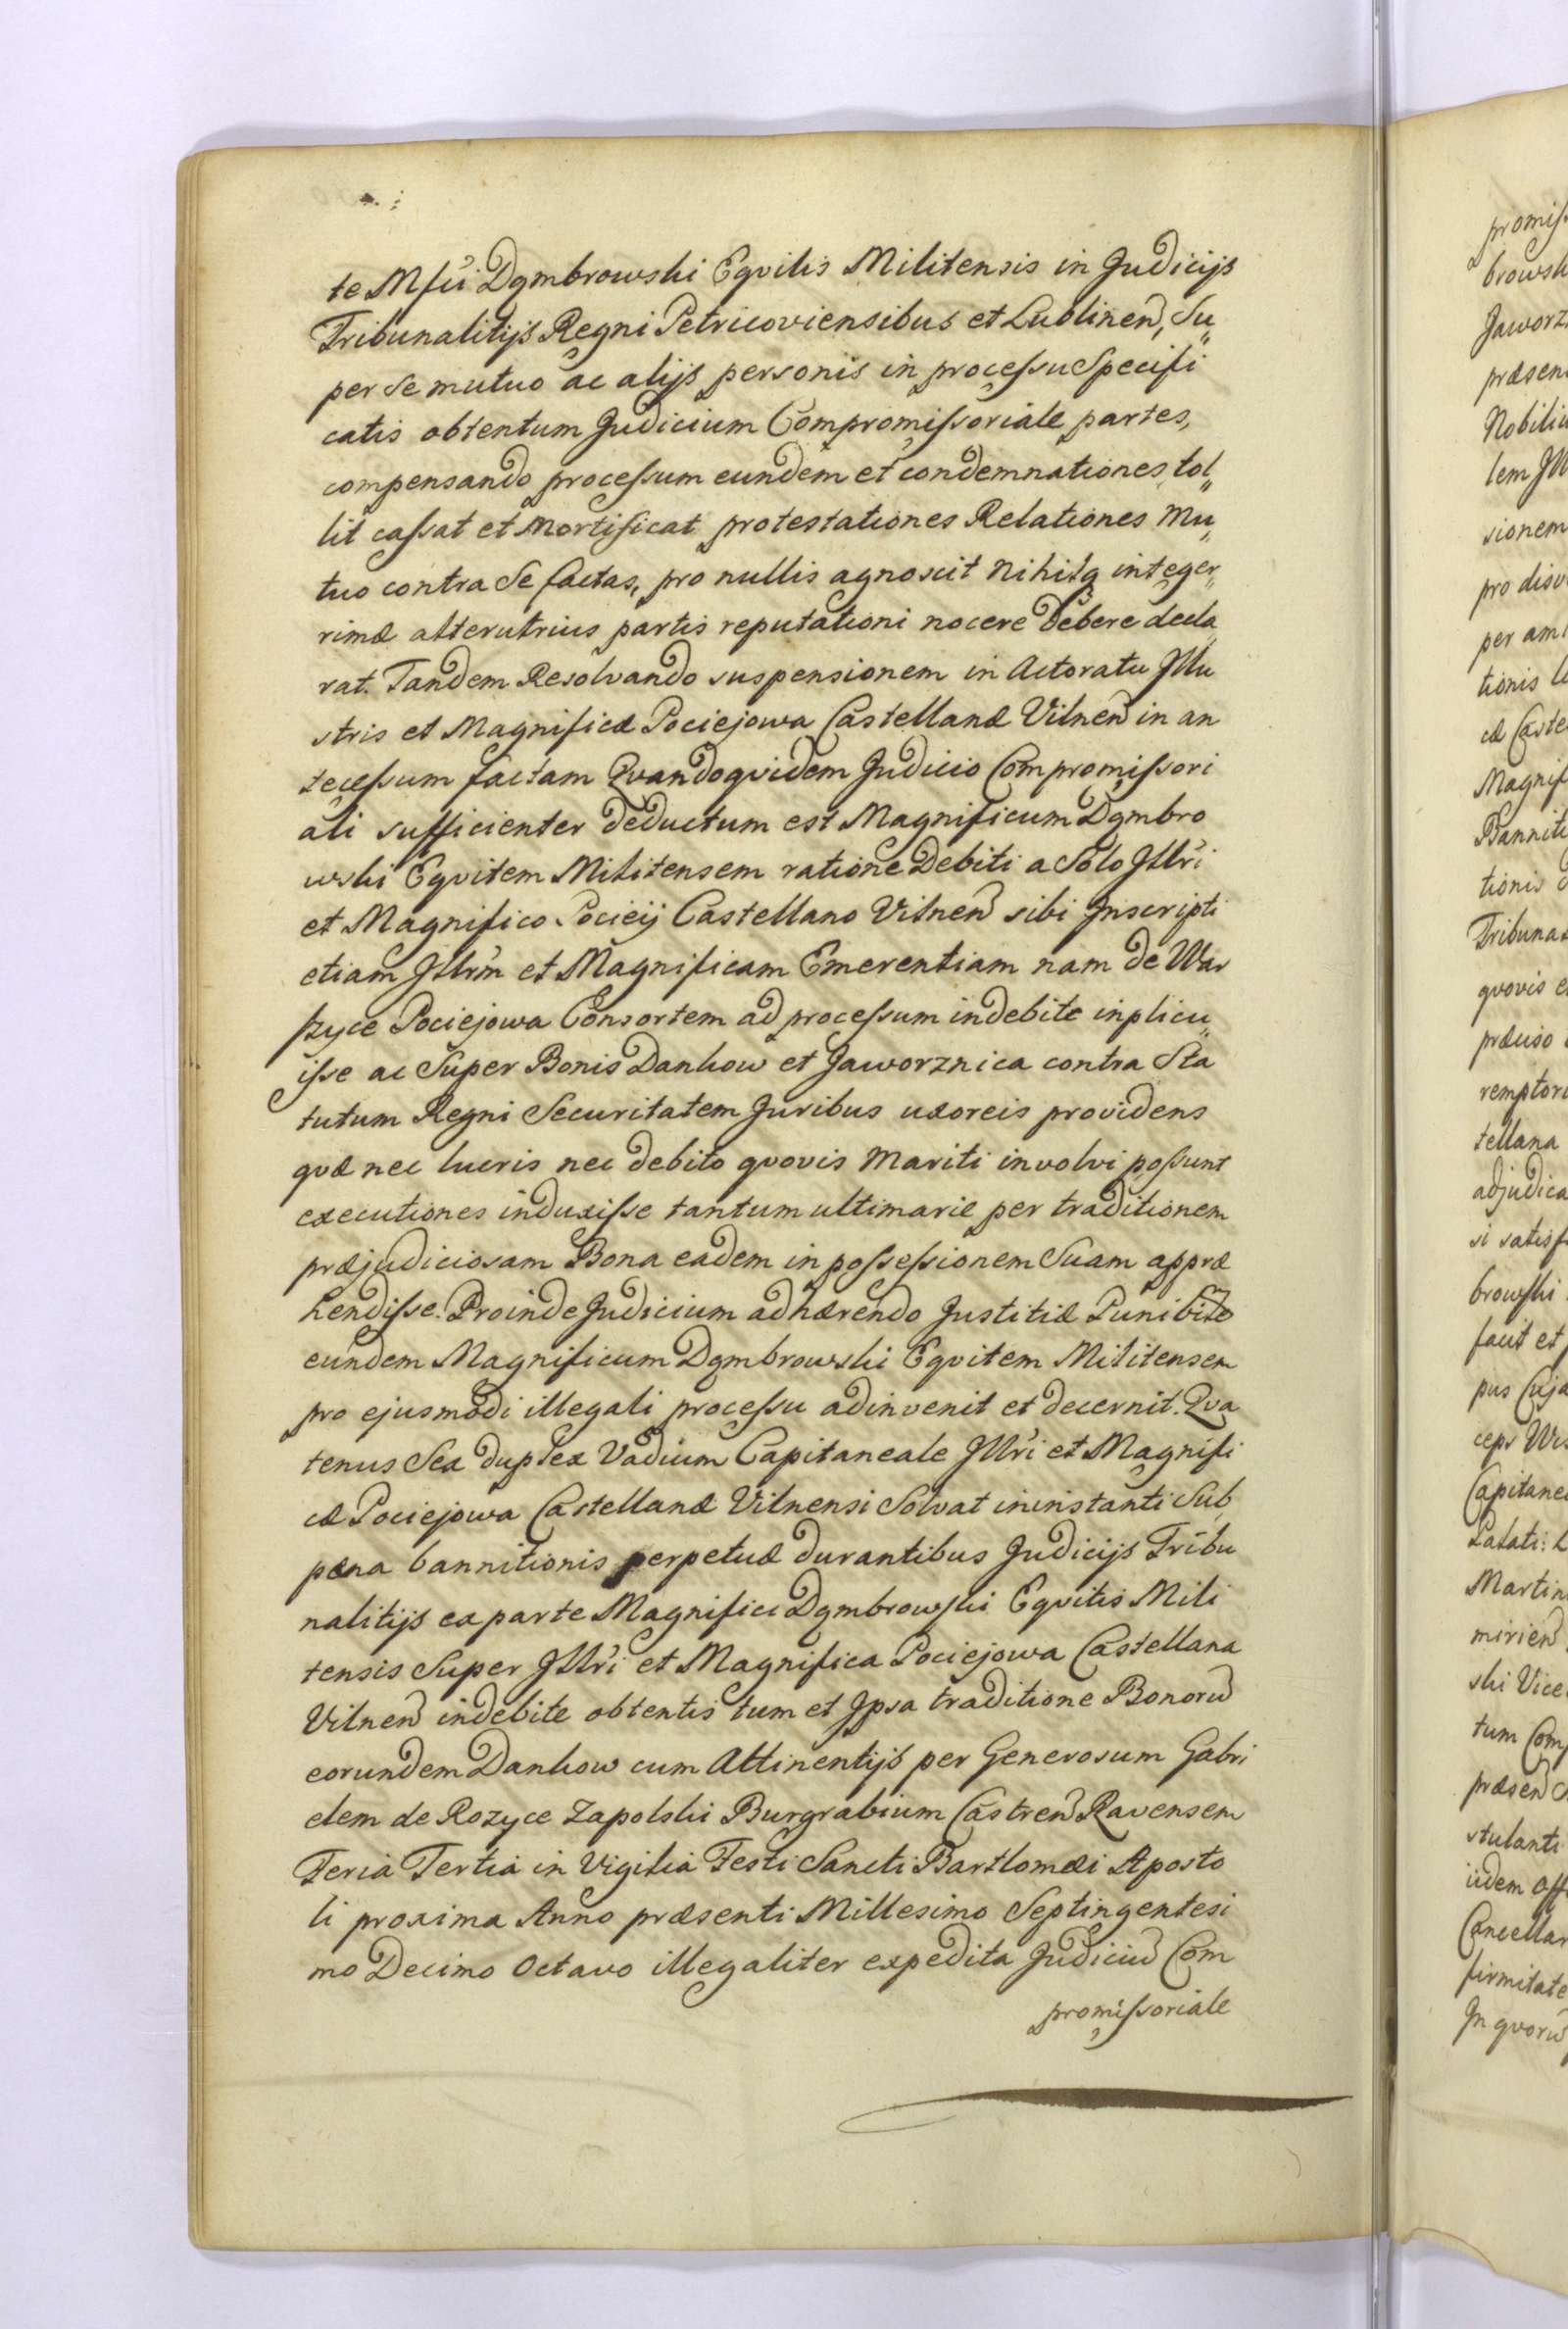 te Mfci Dąmbrowski Eqvitis Militensis in Judicijs
Tribunalitijs Regni Petricoviensibus et Lublinen, Su„
per se mutuo ac alijs personis in processu Specifi
catis obtentum Judicium Compromissoriale partes,
compensando processum eundem et condemnationes tol„
lit cassat et mortificat protestationes Relationes Mu„
tuo contra se factas, pro nullis agnoscit nihilq integer„
rimæ alterutrius partis reputationi nocere debere decla
rat. Tandem Resolvando suspensionem in Actoratu Jllu
stris et Magnificæ Pociejowa Castellanæ Vilnen in an
tecessum factam Qvandoqvidem Judicio Compromissori
ali sufficienter deductum est Magnificum Dąmbro
wski Eqvitem Militensem ratione Debiti a Solo Jllri
et Magnifico Pocieij Castellano Vilnen sibi Jnscripti
etiam Jllrm et Magnificam Emerentiam nam de War
szyce Pociejowa Consortem ad processum indebite inplicu„
isse ac Super Bonis Dankow et Jaworznica contra Sta
tutum Regni Securitatem Juribus uxoreis providens
qvæ nec lucris nec debito qvovis Mariti involvi possunt
executiones induxisse tantum ultimarie per traditionem
præjudiciosam Bona eadem in possessionem Suam appræ
hendisse. Proinde Judicium adhærendo Justitiæ Punibile
eundem Magnificum Dąmbrowski Eqvitem Militensem
pro ejusmodi illegali processu adinvenit et decernit. Qva
tenus Sex duplex Vadium Capitaneale Jllri et Magnifi
cæ Pociejowa Castellanæ Vilnensi Solvat ininstanti Sub
pæna bannitionis perpetuæ durantibus Judicijs Tribu
nalitijs ex parte Magnifici Dąmbrowski Eqvitis Mili
tensis Super Jllri et Magnifica Pociejowa Castellana
Vilnen indebite obtentis tum et Jpsa traditione Bonoru
eorundem Dankow cum Attinentijs per Generosum Gabri
elem de Rozyce Zapolski Burgrabium Castren Ravensem
Feria Tertia in Vigilia Festi Sancti Bartlomæi Aposto
li proxima Anno præsenti Millesimo Septingentesi
mo Decimo Octavo illegaliter expedita Judiciu Com
promissoriale
promiss
browsk
Jaworz
præsen
Nobiliu
lem Jll
sionem
pro disv
per am
tionis
cæ Caste
Magnif
Banniti
tionis
Tribuna
qvovis
præciso
remptori
tellana
adjudica
si satisf
browski
facit et
pus Cuja
ceps
Capitane
Palati:
Martin
mirien
ski Vice
tum Com
præsen
stulanti
iidem Off
Cancellar
firmitate
Jn qvoru